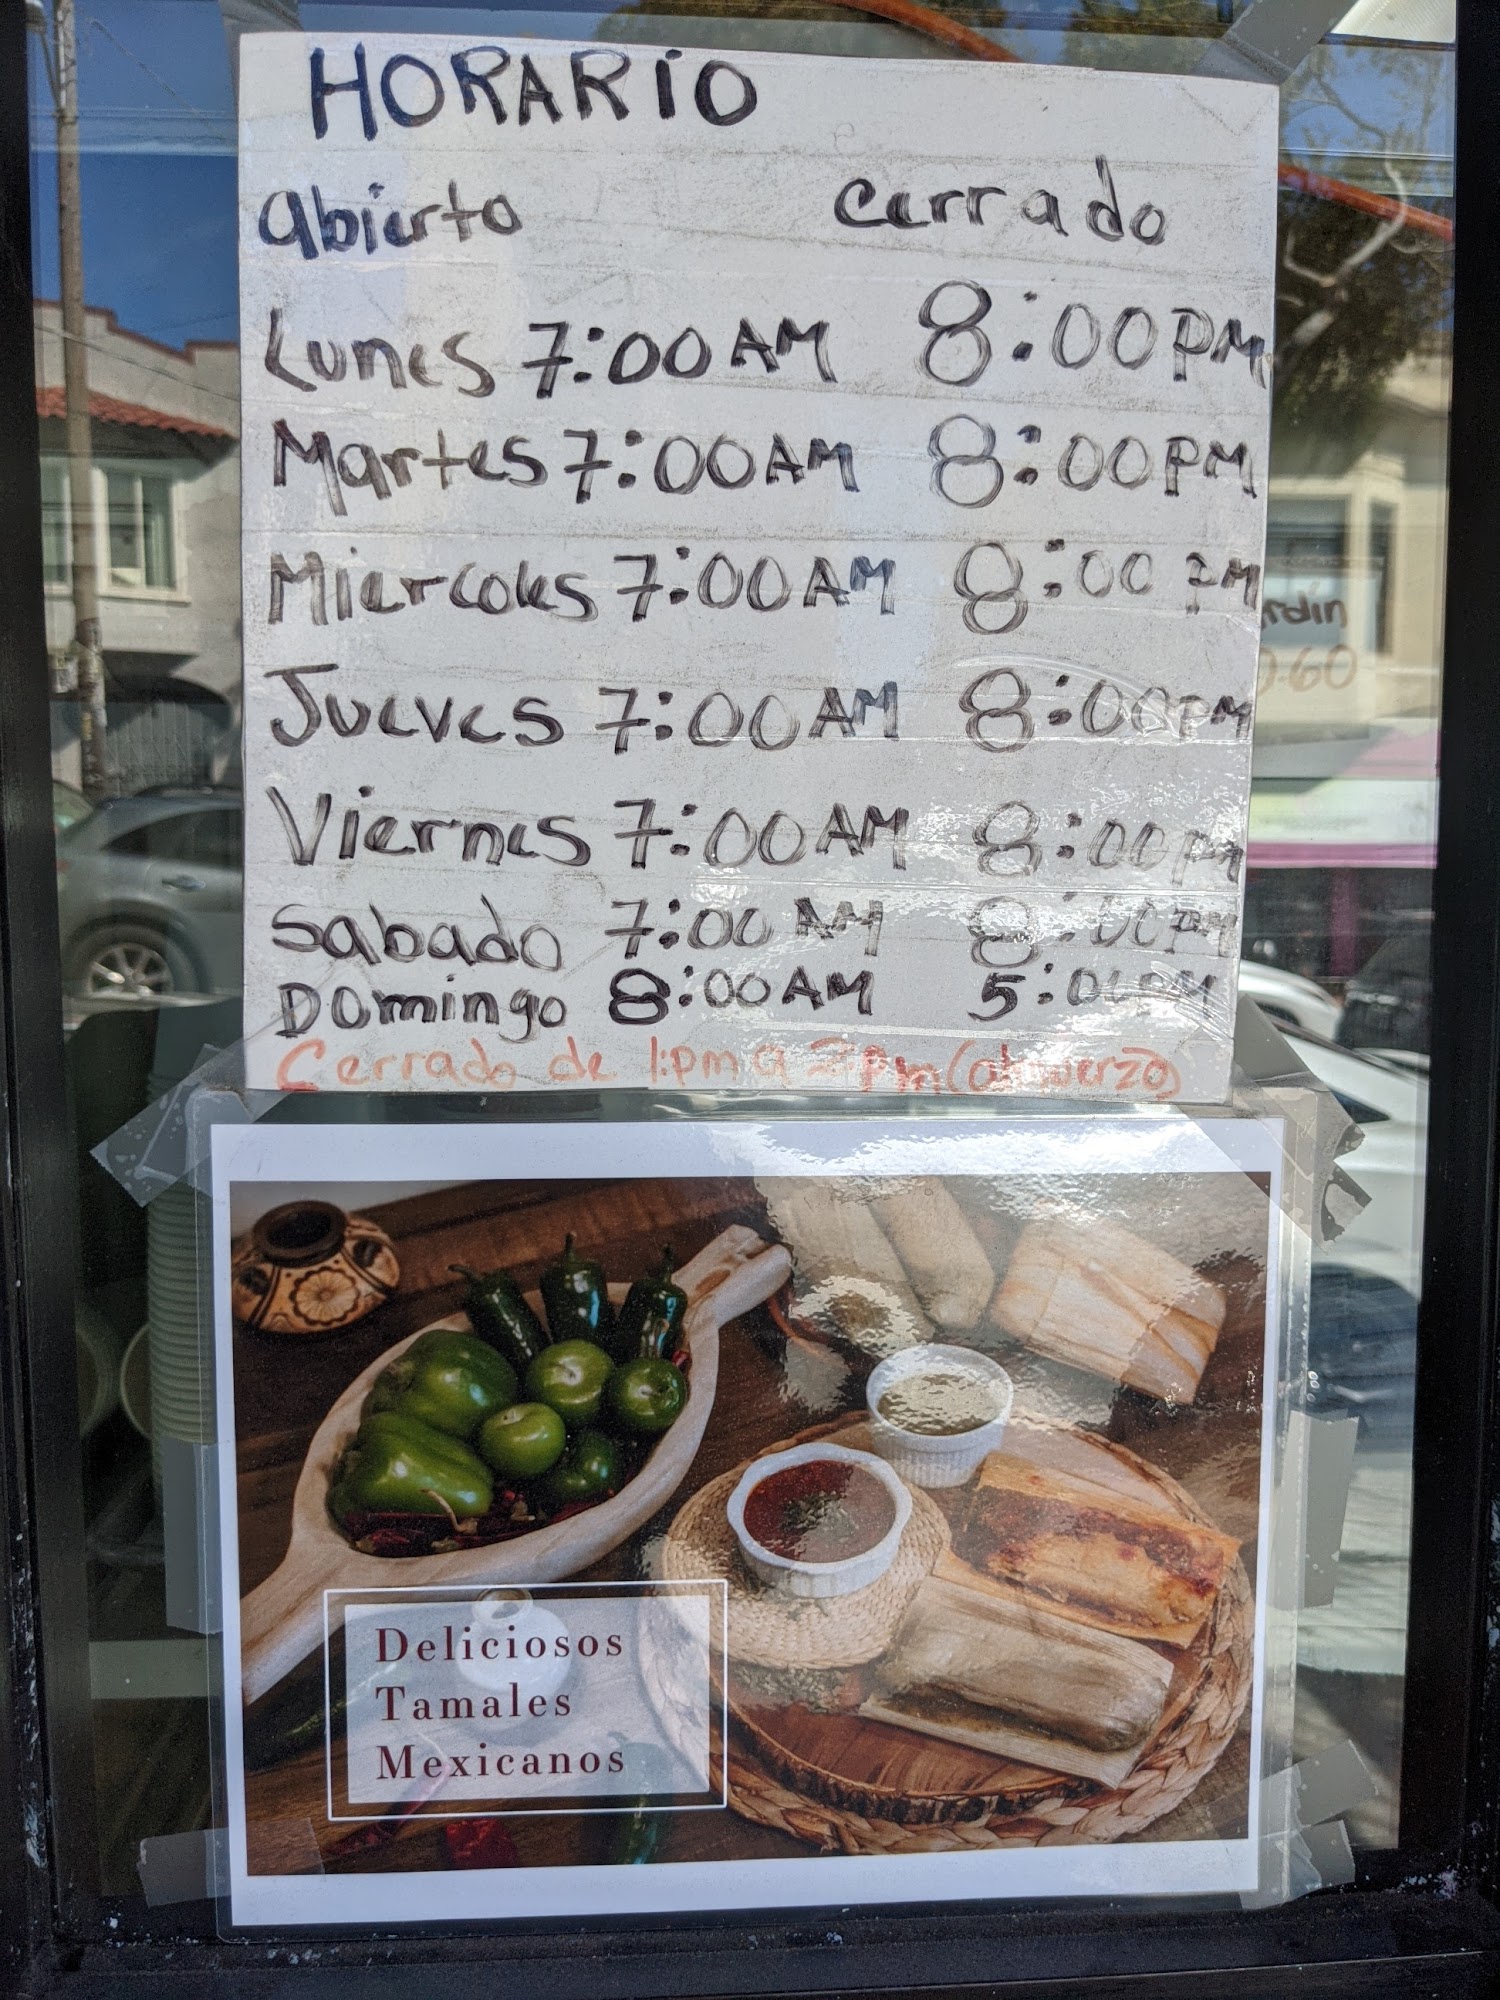 HORARIO
abierto cerrado
Lunes 7:00 AM 8:00 PM
Martes 7:00 AM 8:00 PM
Miercoles 7:00 AM 8:00 PM
Jueves 7:00 AM 8:00 PM
Viernes 7:00 AM 8:00 PM
Sabado 7:00 AM 8:00 PM
Domingo 8:00 AM 5:00 PM
Cerrado de 1:pm a 2 Pm (almuerzo)
Deliciosos
Tamales
Mexicanos